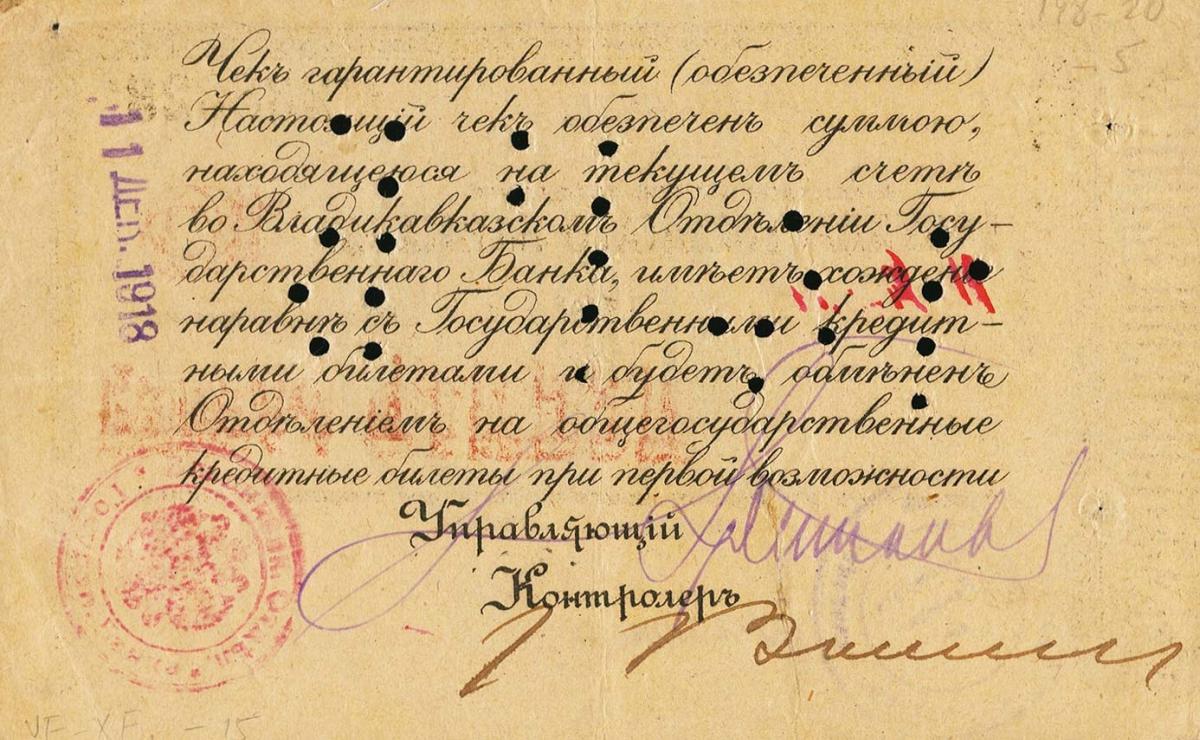 198-20
- 5
Чекъ гарантированный (обезпеченный)
Настоящій чекъ обезпеченъ суммою,
находящеюся на текущемъ счетѣ
во Владикавказскомъ Отдѣленіи Госу-
дарственнаго Банка, имѣетъ хожденіе
наравнѣ съ Государственными кредит-
ными билетами и будетъ обмѣненъ
Отдѣленіемъ на общегосударственные
кредитные билеты при первой возможности
Управляющій
Контролеръ
11 ДЕК. 1918
VF-XF - 15